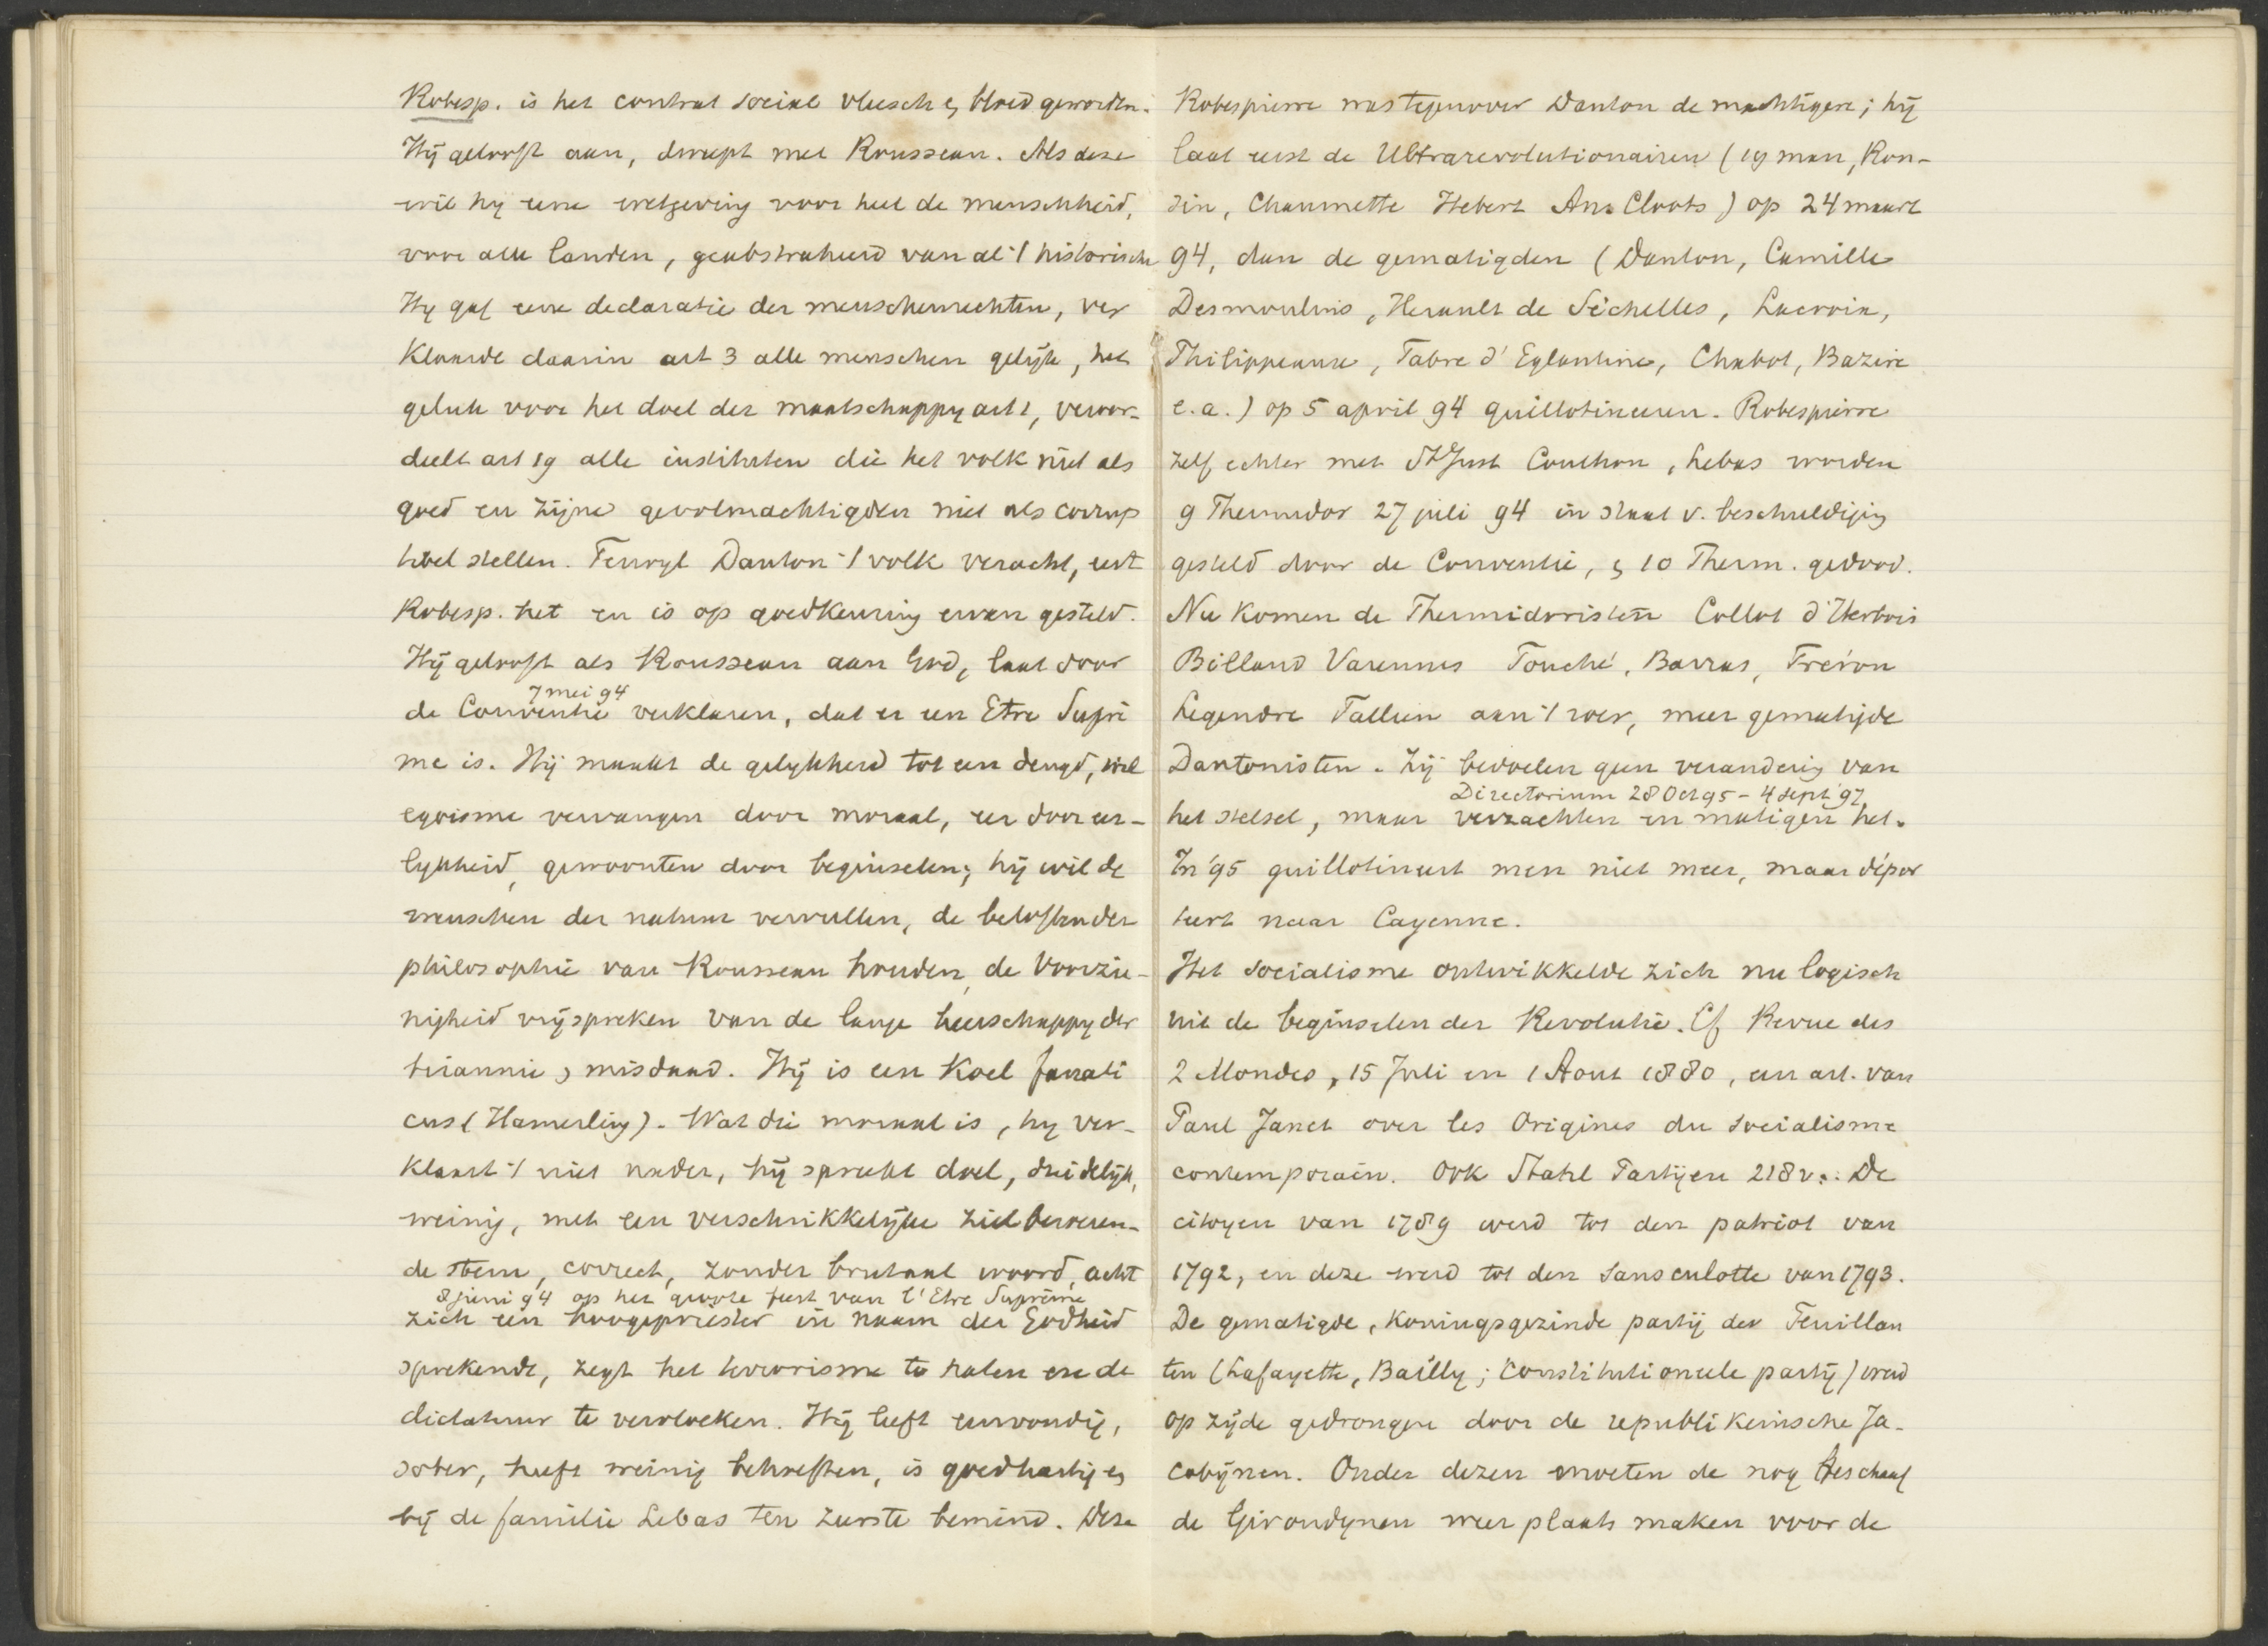 Robesp. is het contrat social vleesch & bloed geworden.
Hij gelooft aan, dweept met Rousseau. Als deze
wil hy eene wetgeving voor heel de menschheid,
voor alle landen, geabstraheerd van al 't historische
Hy gaf eene declaratie der menschenrechten, ver
klaarde daarin art 3 alle menschen gelijk, het
geluk voor het doel der maatschappy art 1, veroor-
deelt art 19 alle instituten die het volk niet als
goed en zijne gevolmachtigden niet als corrup
tibel stellen. Terwyl Danton 't volk veracht, eert
Robesp. het en is op goedkeuring ervan gesteld.
Hij gelooft als Rousseau aan God, laat door
7 mei 94
de Conventie verklaren, dat er een Etre Suprê
me is. Hij maakt de gelykheid tot een deugd, wil
egoisme vervangen door moraal, eer door eer-
lykheid, gewoonten door beginselen; hij wil de
wenschen der natuur vervullen, de beloften der
philosophie van Rousseau houden, de Voorzie-
nigheid vrijspreken van de lange heerschappy der
tirannie & misdaad. Hij is een koel fanati
cus (Hamerling). Wat die moraal is, hy ver-
klaart 't niet nader, hij spreekt doel, duidelijk,
weinig, met een verschrikkelijke zielbeweren-
de stem, correct, zonder brutaal woord, acht
8 juni 94 op het groote feest van l'Etre Suprême
zich een hoogepriester in naam der Godheid
sprekende, zegt het terrorisme te haten en de
dictatuur te vervloeken. Hij leeft eenvoudig,
sober, heeft weinig behoeften, is goedhartig &
bij de familie Lebas ten zeerste bemind. Deze
Robespierre was tegenover Danton de machtigere; hij
laat eerst de Ultrarevolutionairen (19 man, Ron-
sin, Chaumette Hebert Ana Cloots) op 24 maart
94, dan de gematigden (Danton, Camille
Desmoulins, Herault de Séchelles, Lacroix,
Philippeaux, Fabre d'Eglantine, Chabot, Bazire
e.a.) op 5 april 94 guillotineeren. Robespierre
zelf echter met St Just Couthon, Lebas worden
9 Thermidor 27 juli 94 in staat v. beschuldiging
gesteld door de Conventie, & 10 Therm. gedood.
Nu komen de Thermidoristen Collot d'Herbois
Billaud Varennes Fouché, Barras, Fréron
Legendre Tallien aan 't roer, meer gematigde
Dantonisten. Zij bedoelen geen verandering van
Directorium 28 Oct 95 - 4 Sept 97
het stelsel, maar verzachten en matigen het.
In '95 guillotineert men niet meer, maar dépor
teert naar Cayenne.
Het socialisme ontwikkelde zich nu logisch
uit de beginselen der Revolutie. Cf Revue des
2 Mondes, 15 Juli en 1 Aout 1880, een art. van
Paul Janet over les Origines du socialisme
contemporain. Ook Stahl Partijen 218 v.: De
citoyen van 1789 werd tot den patriot van
1792, en deze werd tot den sansculotte van 1793.
De gematigde, koningsgezinde partij der Feuillan
ten (Lafayette, Bailly; constitutioneele partij) werd
op zijde gedrongen door de republikeinsche Ja-
cobijnen. Onder dezen moeten de nog beschaaf
de Girondynen weer plaats maken voor de